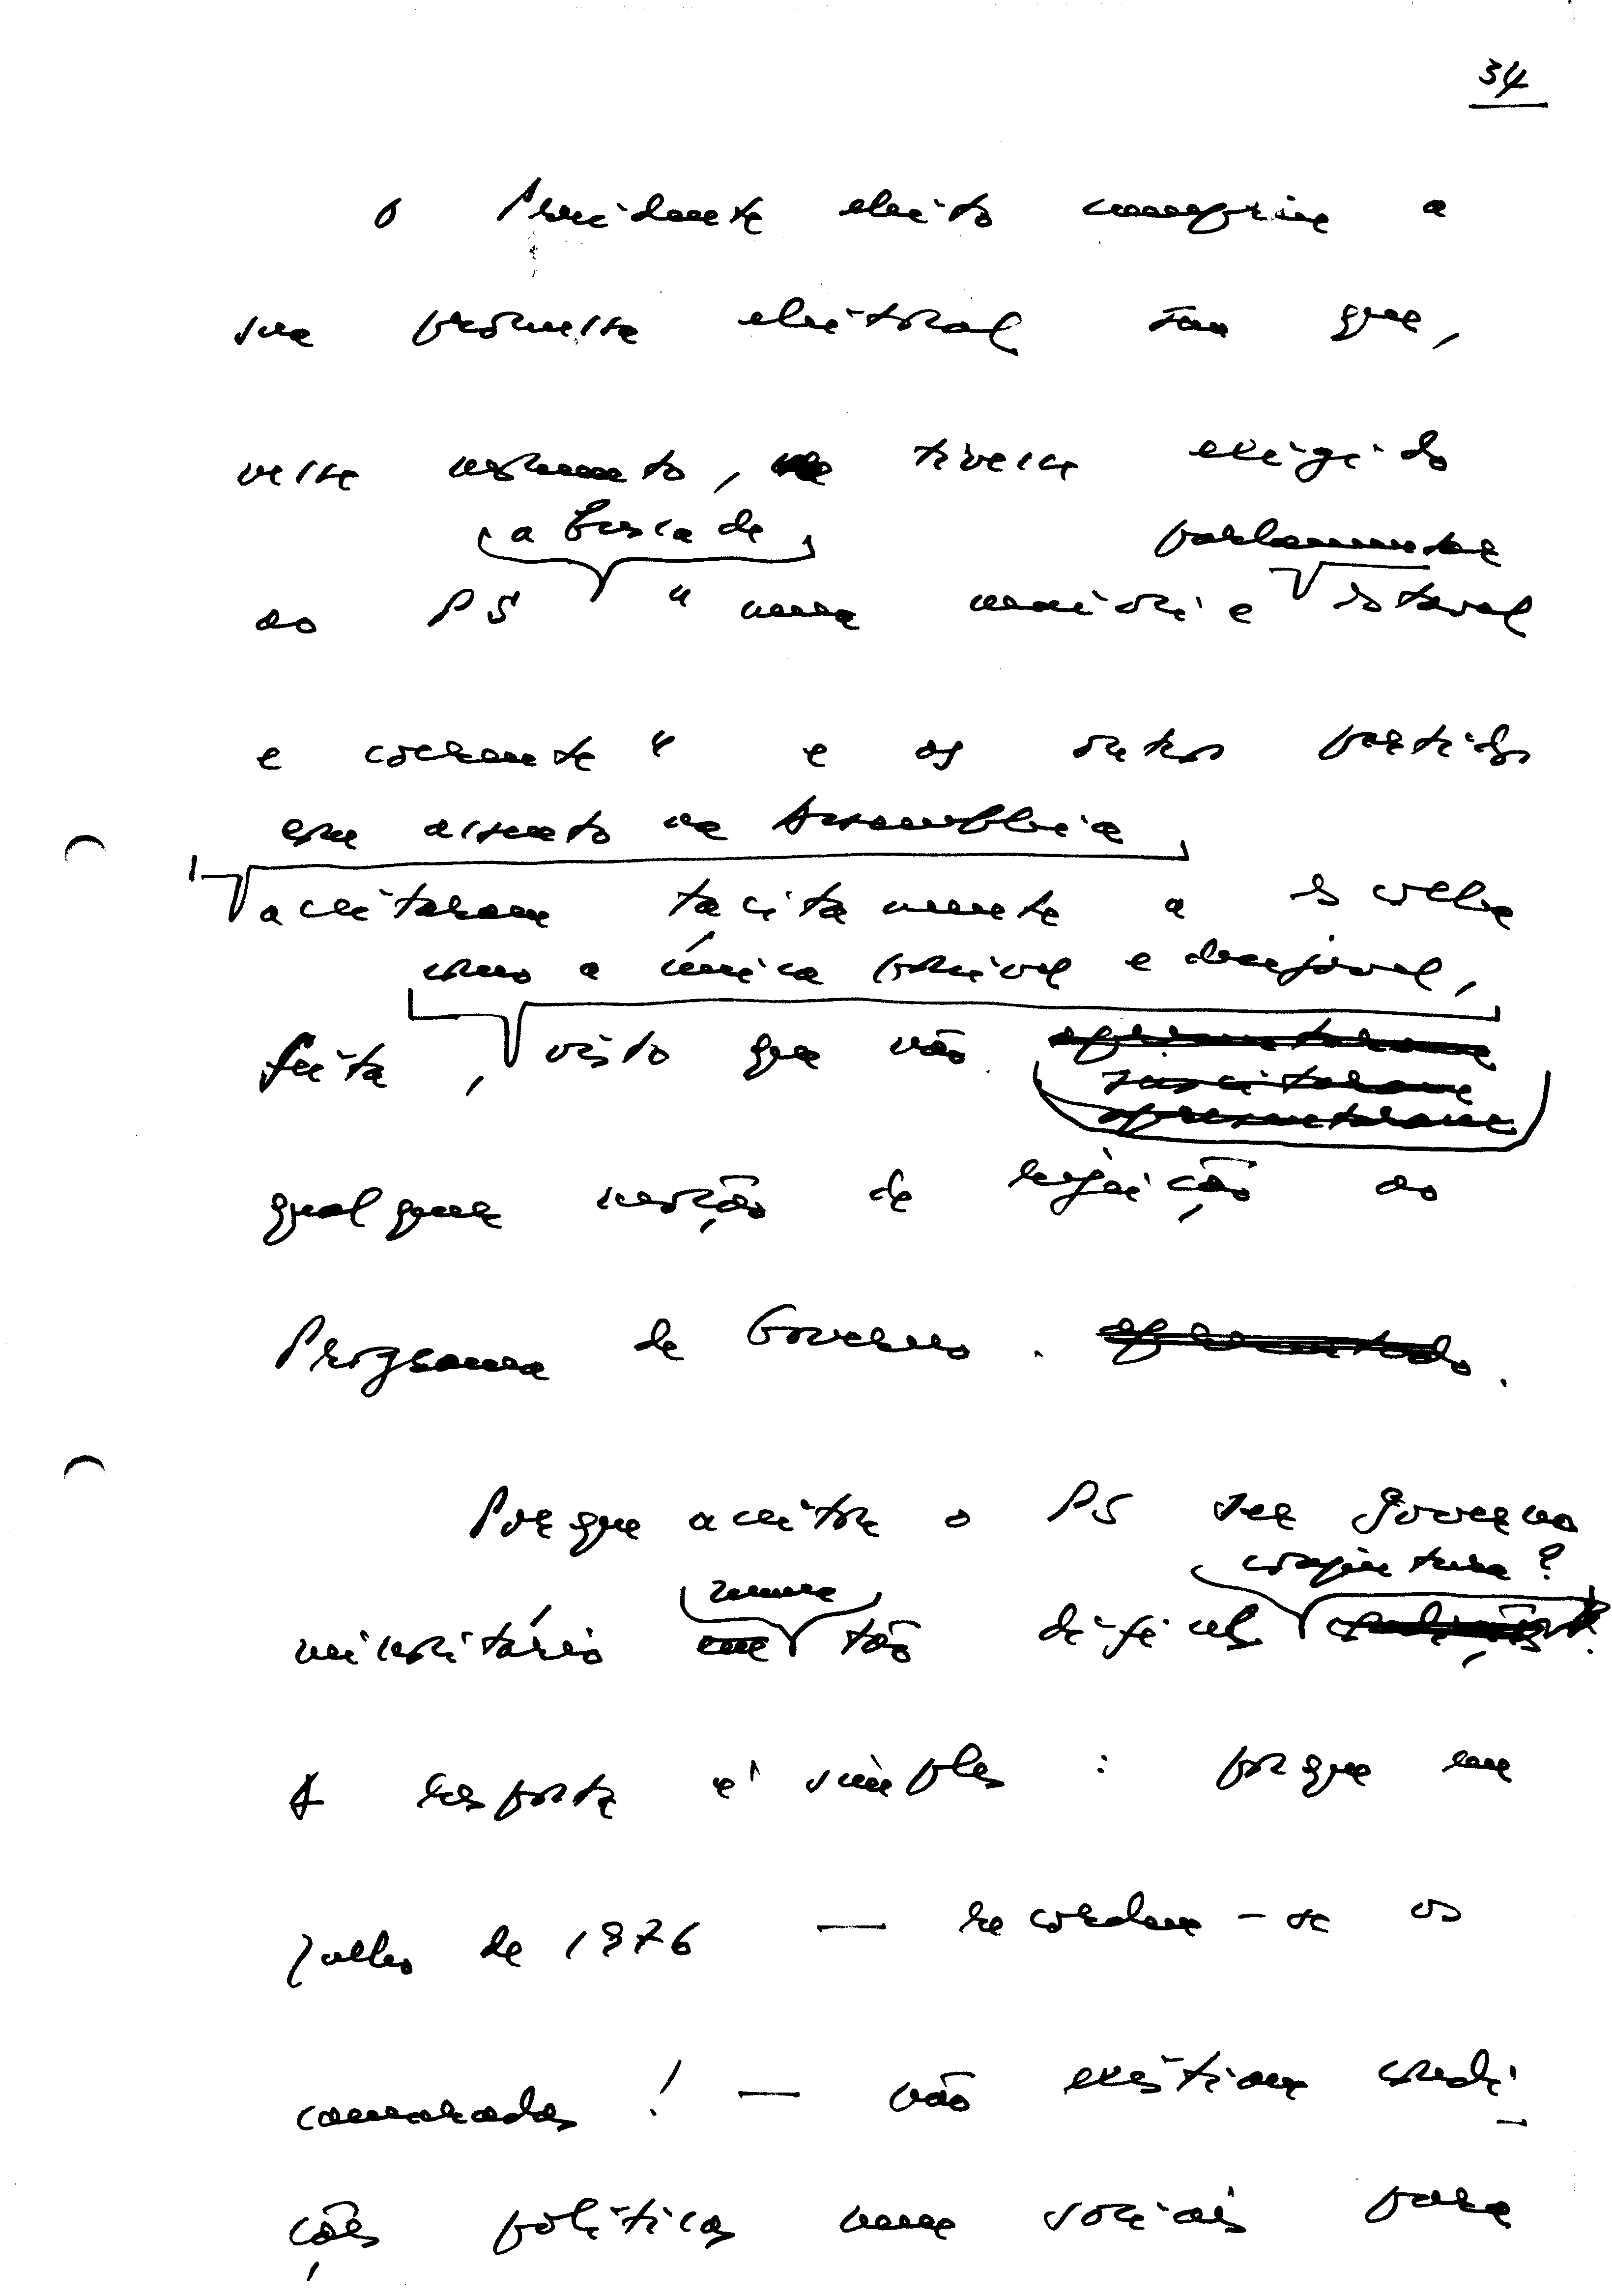 34
O Presidente eleito cumprira a
sua promessa eleitoral sem que,
nesse momento, tivesse exigido
a busca de parlamentar
ao PS "uma maioria estável
e coerente" e os outros partidos
com assento na Assembleia
aceitaram tacitamente a escolha
como a única possível e desejável,
feita, visto que não apresentaram
suscitaram
apresentaram
qualquer moção de rejeição ao
Programa de Governo. apresentado.
Porque aceitou o PS ser Governo
numa conjuntura?
minoritário em tão difícil
A resposta é simples: porque em
Julho de 1976 — recordam-se os
camaradas! — não existiam condi-
ções políticas nem sociais para